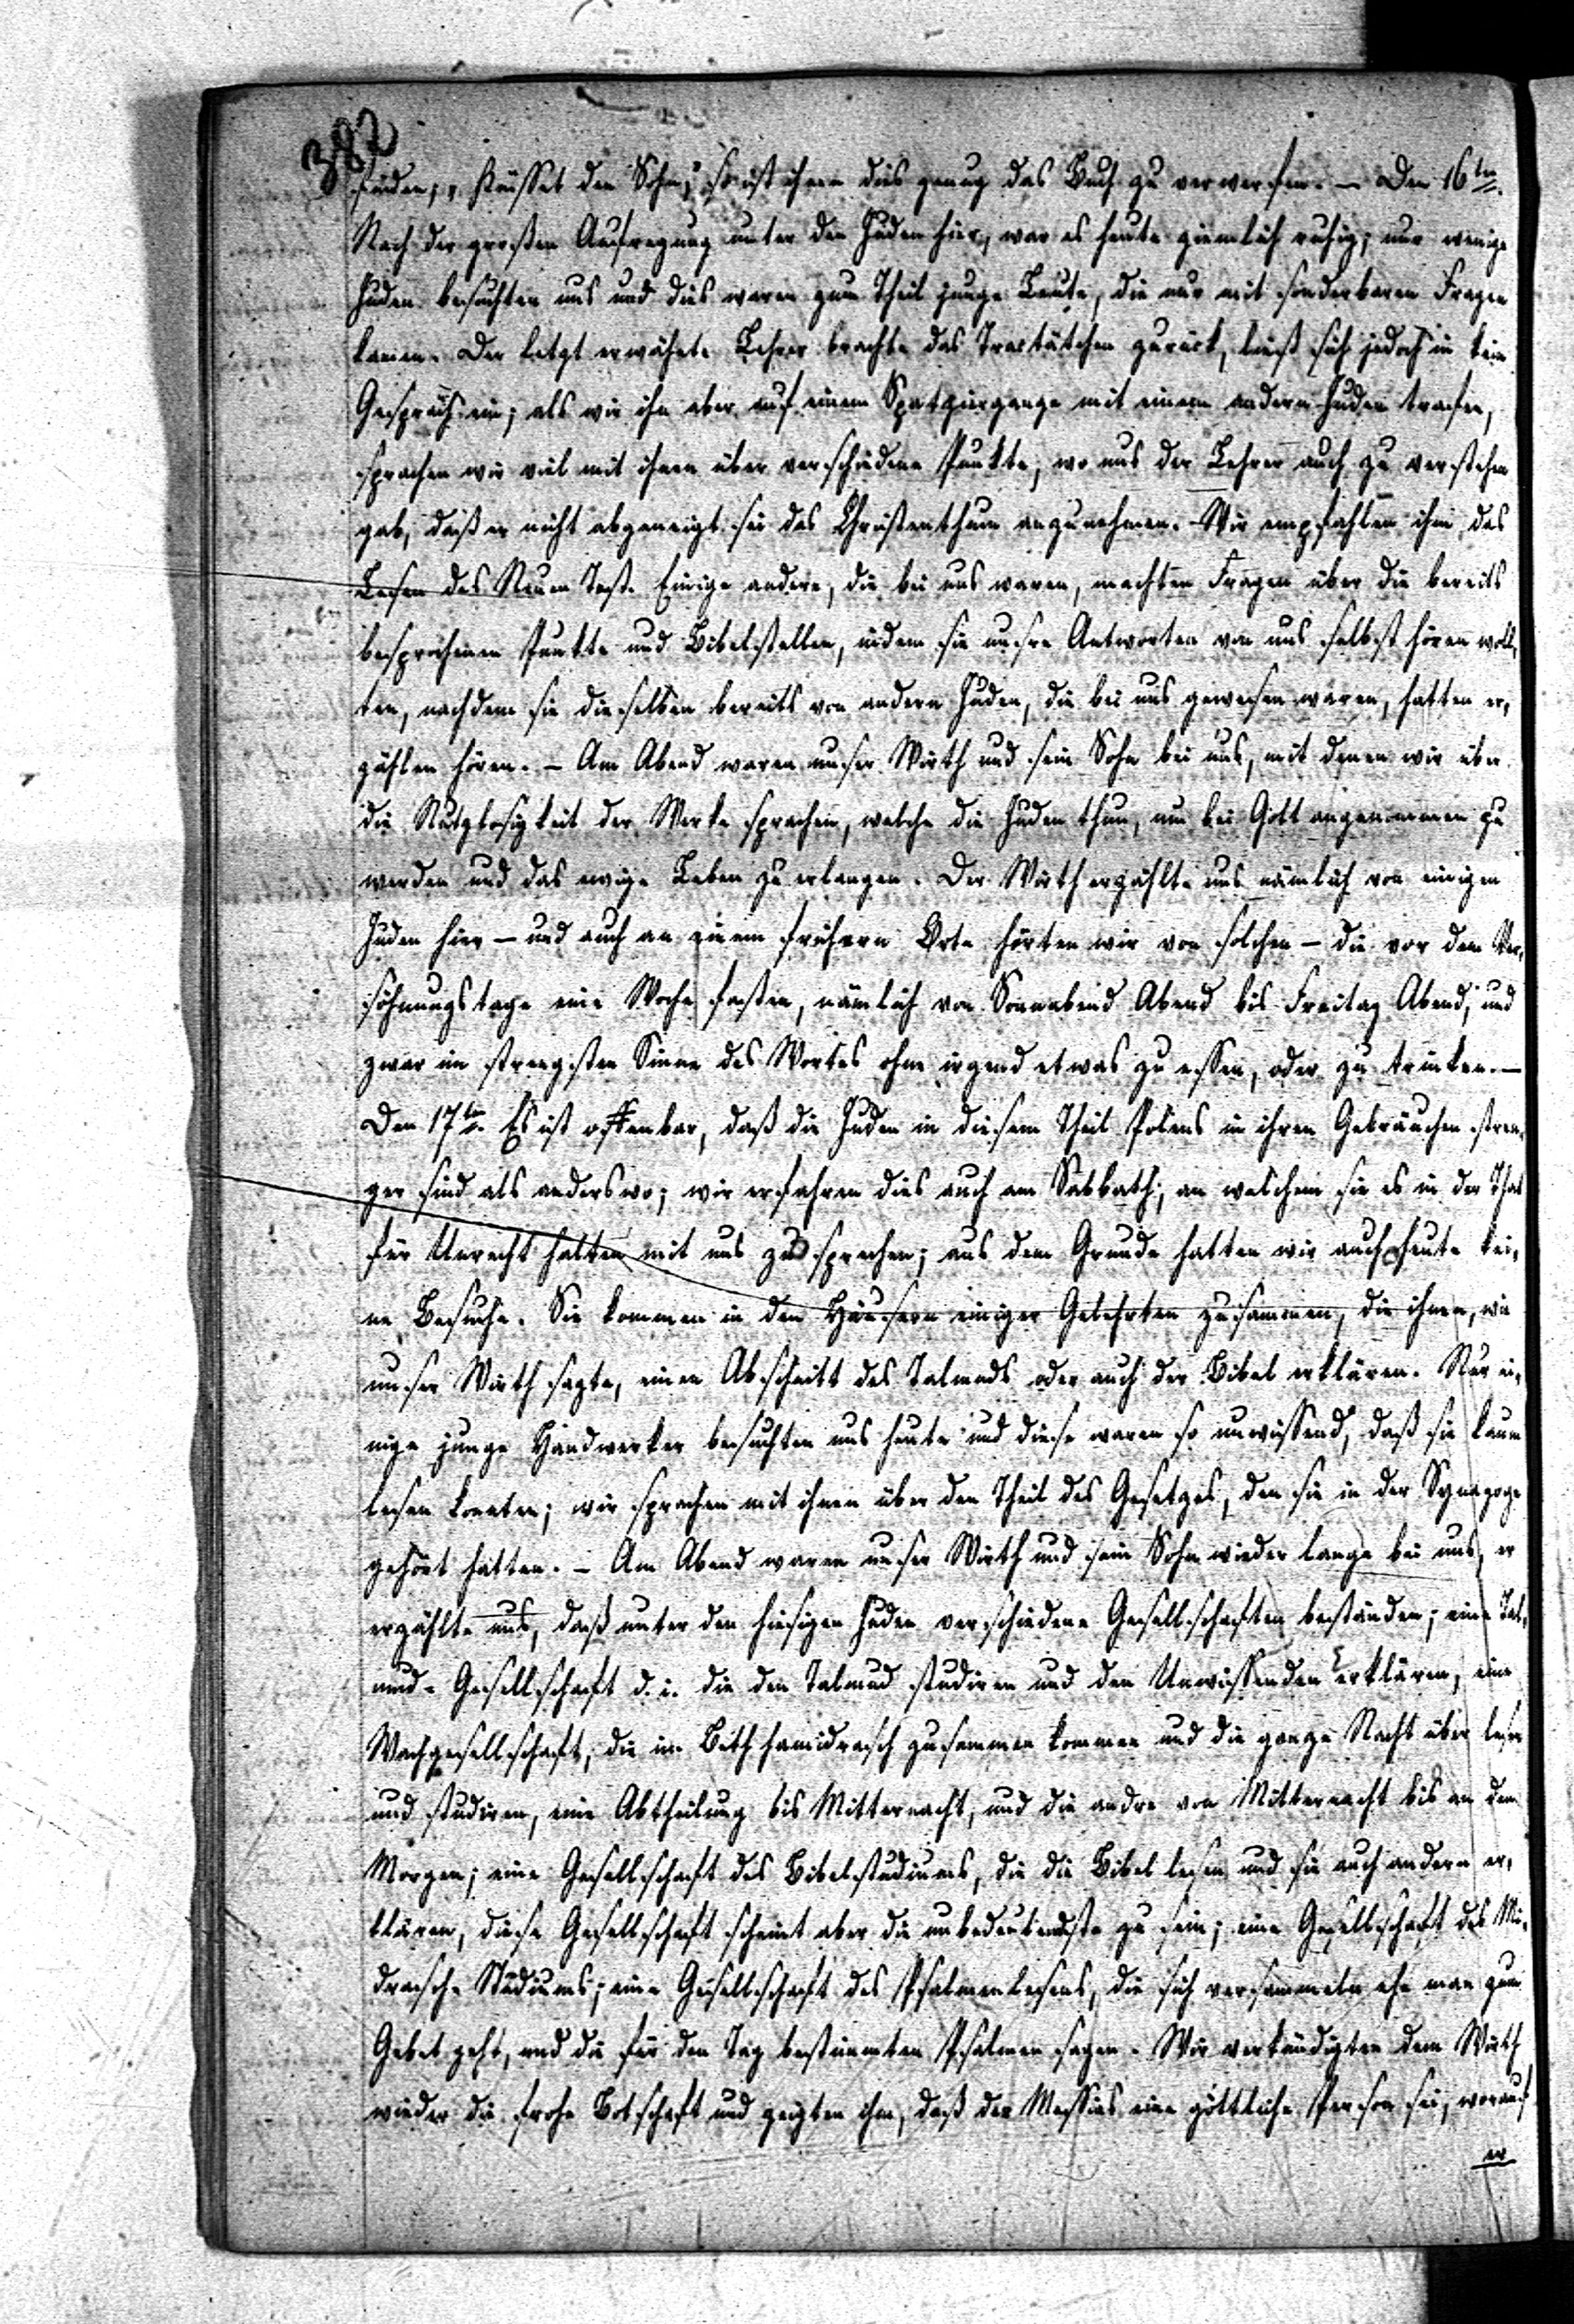 382
finden; „Küsset den Sohn," so ist ihnen dies genug das Buch zu verwerfen. — Den 16ten.
Nach der großen Aufregung unter den Juden hier, war es heute ziemlich ruhig; nur wenige
Juden besuchten uns und dies waren zum Theil junge Leute, die nur mit sonderbaren Fragen
kamen. Der letzt erwähnte Lehrer brachte das Tractätchen zurück, ließ sich jedoch in kein
Gespräch ein; als wir ihn aber auf einem Spatziergange mit einem andern Juden trafen,
sprachen wir viel mit ihnen über verschiedene Punkte, wo uns der Lehrer auch zu verstehen
gab, daß er nicht abgeneigt sei das Christenthum anzunehmen. Wir empfahlen ihm das
Lesen des Neuen Test. Einige andere, die bei uns waren, machten Fragen über die bereits
besprochenen Punkte und Bibelstellen, indem sie unsre Antworten von uns selbst hören woll,
ten, nachdem sie dieselben bereits von andern Juden, die bei uns gewesen waren, hatten er,
zählen hören. — Am Abend waren unser Wirth und sein Sohn bei uns, mit denen wir über
die Nutzlosigkeit der Werke sprachen, welche die Juden thun, um bei Gott angenommen zu
werden und das ewige Leben zu erlangen. Der Wirth erzählte uns nämlich von einigen
Juden hier — und auch an einem frühern Orte hörten wir von solchen — die vor dem Ver,
söhnungstage eine Woche fasten, nämlich von Sonnabend Abend bis Freitag Abend, und
zwar im strengsten Sinne des Wortes ohne irgend etwas zu essen, oder zu trinken. —
Den 17ten. Es ist offenbar, daß die Juden in diesem Theil Polens in ihren Gebräuchen stren,
ger sind als anderswo; wir erfahren dies auch am Sabbath, an welchem sie es in der That
für Unrecht halten mit uns zu sprechen; aus dem Grunde hatten wir auch heute kei,
ne Besuche. Sie kommen in den Häusern einiger Gelehrten zusammen, die ihnen, wie
unser Wirth sagte, einen Abschnitt des Talmuds oder auch der Bibel erklären. Nur ei,
nige junge Handwerker besuchten uns heute und diese waren so unwissend, daß sie kaum
lesen konnten; wir sprachen mit ihnen über den Theil des Gesetzes, den sie in der Synagoge
gehört hatten. — Am Abend waren unser Wirth und sein Sohn wieder lange bei uns, er
erzählte uns, daß unter den hiesigen Juden verschiedene Gesellschaften beständen; eine Tal,
mud-Gesellschaft d. i. die den Talmud studiren und den Unwissenden erklären, eine
Wachgesellschaft, die im Beth hamidrasch zusammen kommen und die ganze Nacht über lesen
und studiren, eine Abtheilung bis Mitternacht, und die andre von Mitternacht bis an den
Morgen; eine Gesellschaft des Bibelstudiums, die die Bibel lesen und sie auch andern er,
klären, diese Gesellschaft scheint aber die unbedeutendste zu sein; eine Gesellschaft des Mi,
drasch-Studiums; eine Gesellschaft des Psalmenlesens, die sich versammeln ehe man zum
Gebet geht, und die für den Tag bestimmten Psalmen sagen. Wir verkündigten dem Wirth
wieder die frohe Botschaft und zeigten ihm, daß der Messias eine göttliche Person sei, worauf
er